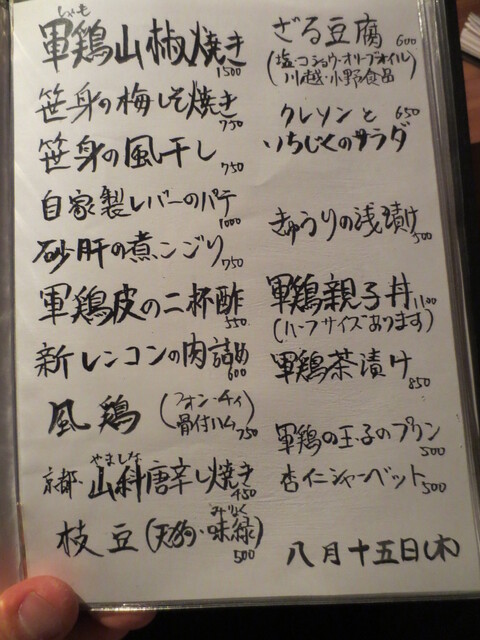 しゃも
軍鶏山椒焼き 1500
笹身の梅しそ焼き 750
笹身の風干し 750
自家製レバーのパテ 1000
砂肝の煮こごり 750
軍鶏皮の二杯酢 550
新レンコンの肉詰め 600
風鶏 (フォン・チィ
骨付ハム) 750
やましな
京都・山科唐辛し焼き 450
みりょく
枝豆 (天狗・味緑) 500
ざる豆腐 600
(塩・コショウ・オリーブオイル)
川越・小野食品
クレソンと 650
いちじくのサラダ
きゅうりの浅漬け 500
軍鶏親子丼 1100
(ハーフサイズあります)
軍鶏茶漬け 850
軍鶏の玉子のプリン 500
杏仁シャーベット 500
八月十五日(木)